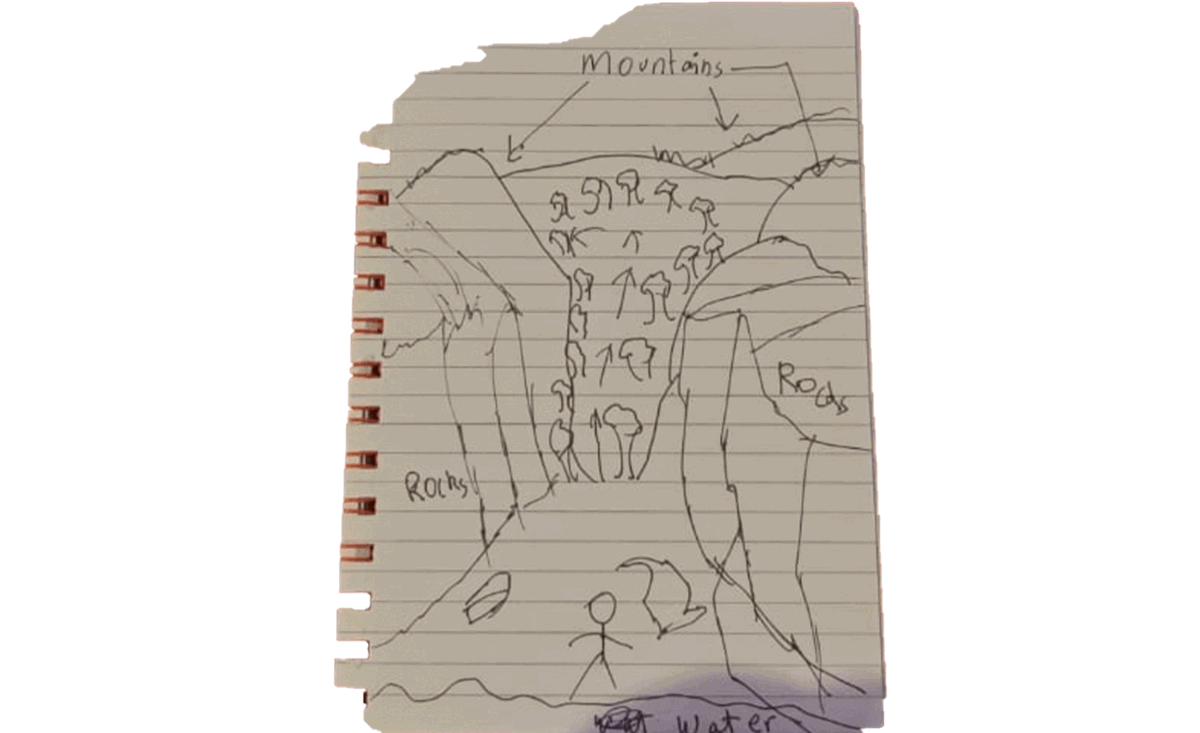 Mountains
Rocks
Rocks
Water